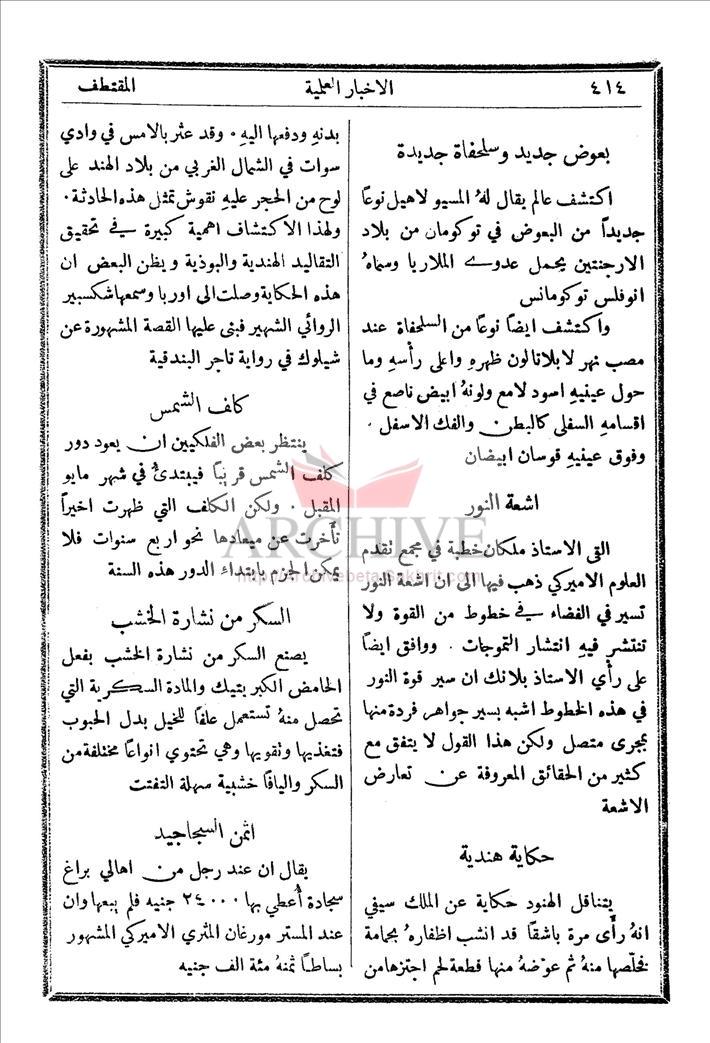 ٤١٤
الاخبار العلمية
المقتطف
بعوض جديد وسلحفاة جديدة
اكتشف عالم يقال لهُ المسيو لاهيل نوعًا
جديدًا من البعوض في توكومان من بلاد
الارجنتين يحمل عدوى الملاريا وسماهُ
انوفلس توكومانس
واكتشف ايضًا نوعًا من السلحفاة عند
مصب نهر لابلاتا لون ظهرهِ واعلى رأسهِ وما
حول عينيهِ اسود لامع ولونهُ ابيض ناصع في
اقسامهِ السفلى كالبطن والفك الاسفل .
وفوق عينيهِ قوسان ابيضان
اشعة النور
القى الاستاذ ملكان خطبة في مجمع تقدم
العلوم الاميركي ذهب فيها الى ان اشعة النور
تسير في الفضاء في خطوط من القوة ولا
تنتشر فيهِ انتشار التموجات . ووافق ايضًا
على رأي الاستاذ بلانك ان سير قوة النور
في هذه الخطوط اشبه بسير جواهر فردة منها
بمجرى متصل ولكن هذا القول لا يتفق مع
كثير من الحقائق المعروفة عن تعارض
الاشعة
حكاية هندية
يتناقل الهنود حكاية عن الملك سيفي
انهُ رأى مرة باشقًا قد انشب اظفارهُ بحمامة
فخلّصها منهُ ثم عوّضهُ منها قطعة لحم اجتزها من
بدنهِ ودفعها اليهِ . وقد عثر بالامس في وادي
سوات في الشمال الغربي من بلاد الهند على
لوح من الحجر عليهِ نقوش تمثل هذه الحادثة .
ولهذا الاكتشاف اهمية كبيرة في تحقيق
التقاليد الهندية والبوذية ويظن البعض ان
هذه الحكاية وصلت الى اوربا وسمعها شكسبير
الروائي الشهير فبنى عليها القصة المشهورة عن
شيلوك في رواية تاجر البندقية
كلف الشمس
ينتظر بعض الفلكيين ان يعود دور
كلف الشمس قريبًا فيبتدئ في شهر مايو
المقبل . ولكن الكلف التي ظهرت اخيرًا
تأخرت عن ميعادها نحو اربع سنوات فلا
يمكن الجزم بابتداء الدور هذه السنة
السكر من نشارة الخشب
يصنع السكر من نشارة الخشب بفعل
الحامض الكبريتيك والمادة السكرية التي
تحصل منهُ تستعمل علفًا للخيل بدل الحبوب
فتغذيها وتقويها وهي تحتوي انواعًا مختلفة من
السكر واليافًا خشبية سهلة التفتت
اثمن السجاجيد
يقال ان عند رجل من اهالي براغ
سجادة أُعطي بها ٢٤٠٠٠ جنيه فلم يبعها وان
عند المستر مورغان المثري الاميركي المشهور
بساطًا ثمنهُ مئة الف جنيه
ARCHIVE